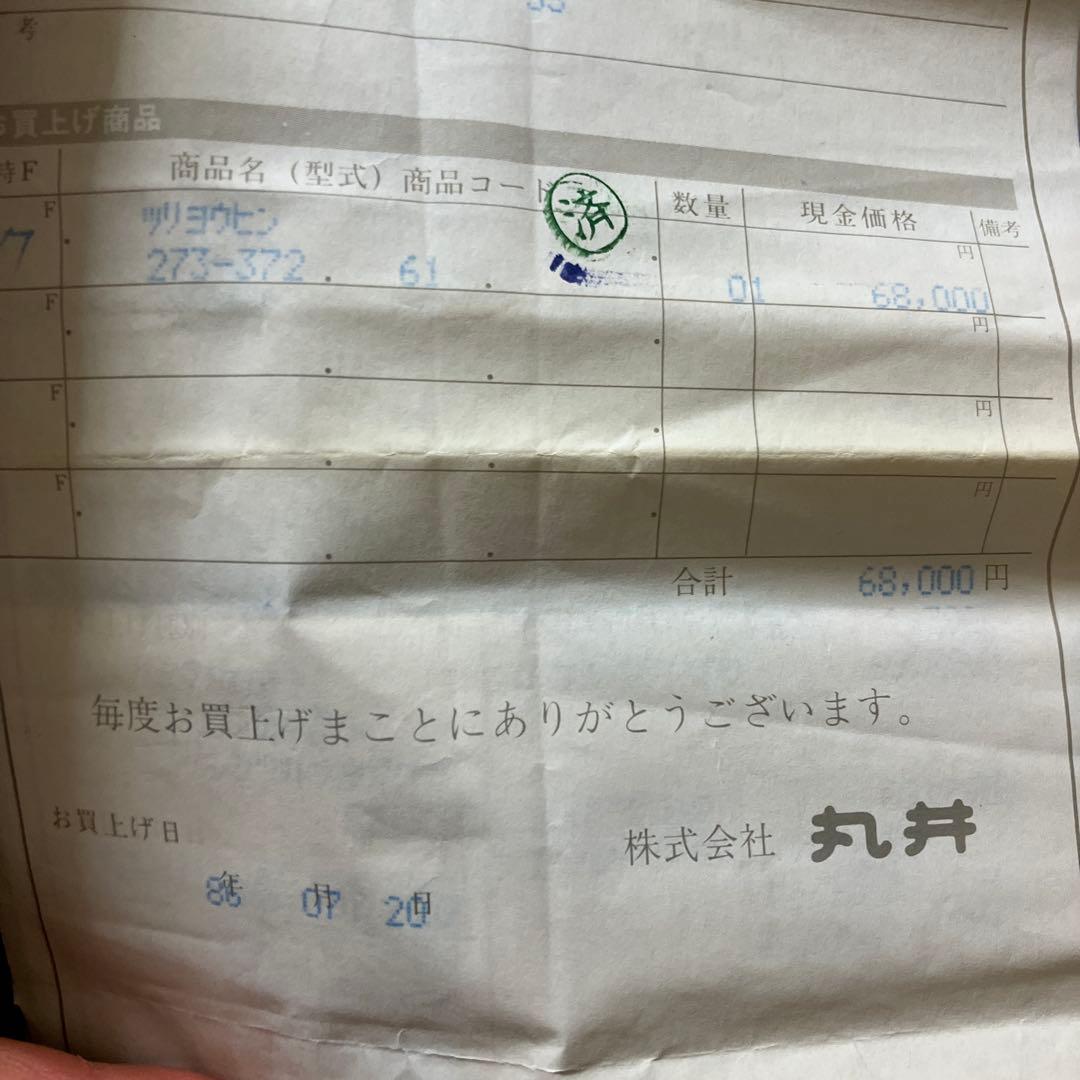 考
お買上げ商品
時F 商品名（型式）商品コード 数量 現金価格 備考
F ツリヨウヒン 済 円
273-372 61 01 68,000
F 円
F 円
F 円
合計 68,000 円
毎度お買上げまことにありがとうございます。
お買上げ日
株式会社 丸井
86年 07月 20日